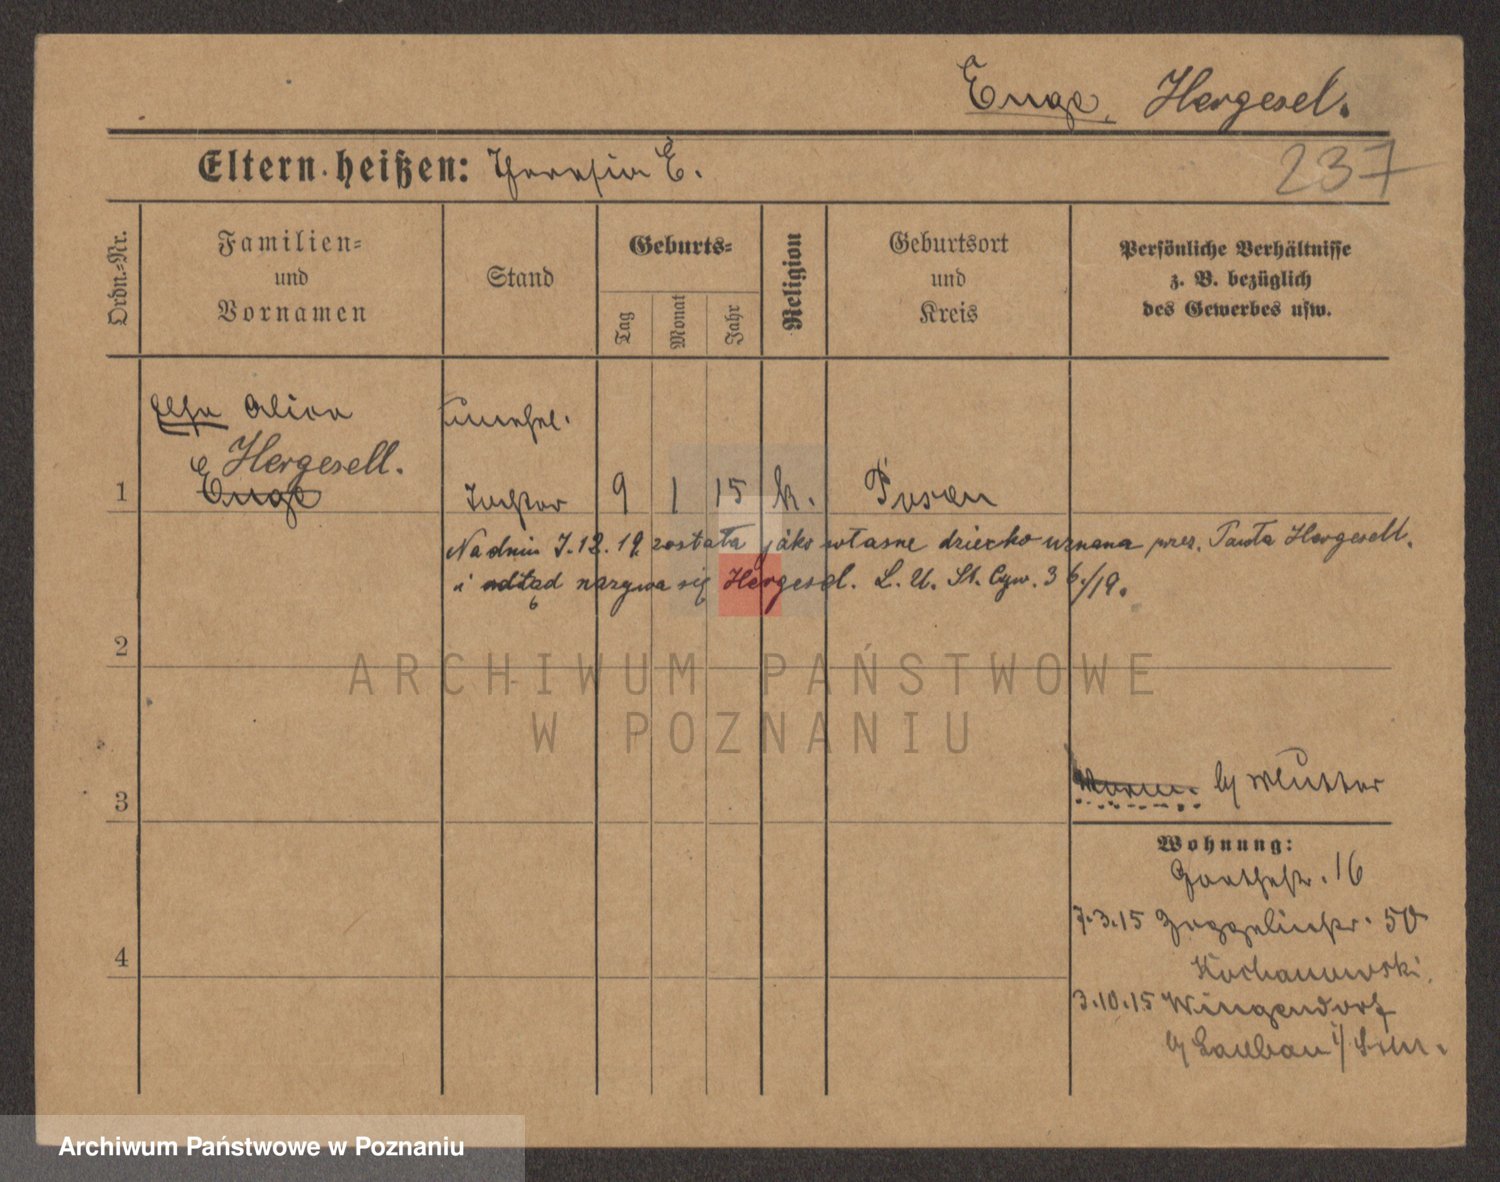 Enge, Hergesel.
Eltern heißen: Theresia E.
237
Ordn.-Nr.
Familien-
und
Vornamen
Stand
Geburts-
Tag
Monat
Jahr
Religion
Geburtsort
und
Kreis
Persönliche Verhältnisse
z. B. bezüglich
des Gewerbes usw.
Elsa Alica
Hergesell.
Enge
1
Tochter
9
1
15
k.
Posen
Na dniu 7.12.19 została jako własne dziecko uznana prez. Pawła Hergesell.
i odtąd nazywa się Hergesel. L. U. St. Cyw. 36/19.
2
ARCHIWUM PAŃSTWOWE
W POZNANIU
3
b/ Mutter
Wohnung:
Goethestr. 16
7.3.15 Zeppelinstr. 50
Kochanowski.
4
3.10.15 Wingendorf
b/ Lauban i/
Archiwum Państwowe w Poznaniu